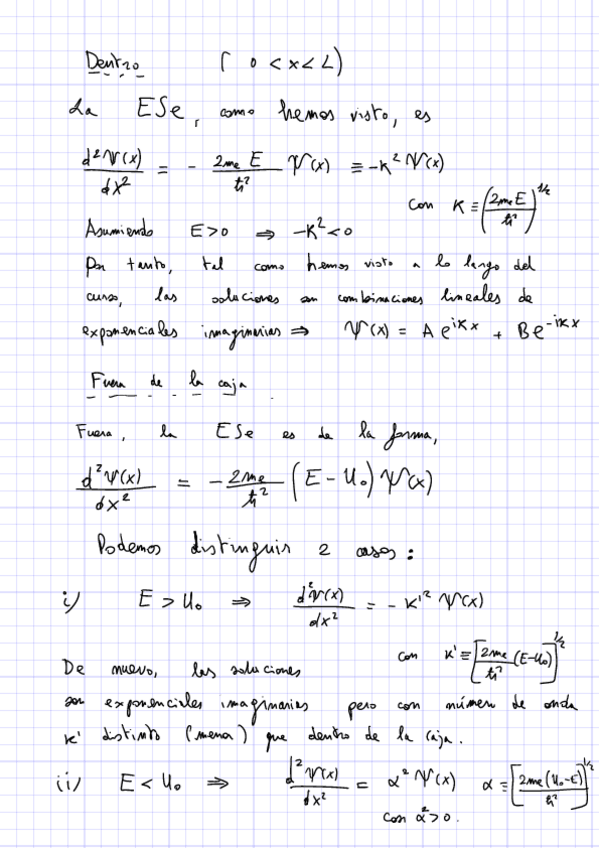 Dentro ( 0 < x < L )
La ESe, como hemos visto, es
d²Ψ(x)/dx² = - 2me E/ħ² Ψ(x) ≡ -K² Ψ(x)
con K ≡ (2me E/ħ²)^1/2
Asumiendo E>0 ⇒ -K²<0
Por tanto, tal como hemos visto a lo largo del
curso, las soluciones son combinaciones lineales de
exponenciales imaginarias ⇒ Ψ(x) = A e^iKx + B e^-iKx
Fuera de la caja
Fuera, la ESe es de la forma,
d²Ψ(x)/dx² = - 2me/ħ² (E - U₀) Ψ(x)
Podemos distinguir 2 casos :
i/ E > U₀ ⇒ d²Ψ(x)/dx² = - K'² Ψ(x)
con K' ≡ [2me/ħ² (E-U₀)]^1/2
De nuevo, las soluciones
son exponenciales imaginarias pero con número de onda
K' distinto (menor) que dentro de la caja.
ii/ E < U₀ ⇒ d²Ψ(x)/dx² = α² Ψ(x) α ≡ [2me(U₀-E)/ħ²]^1/2
con α²>0.